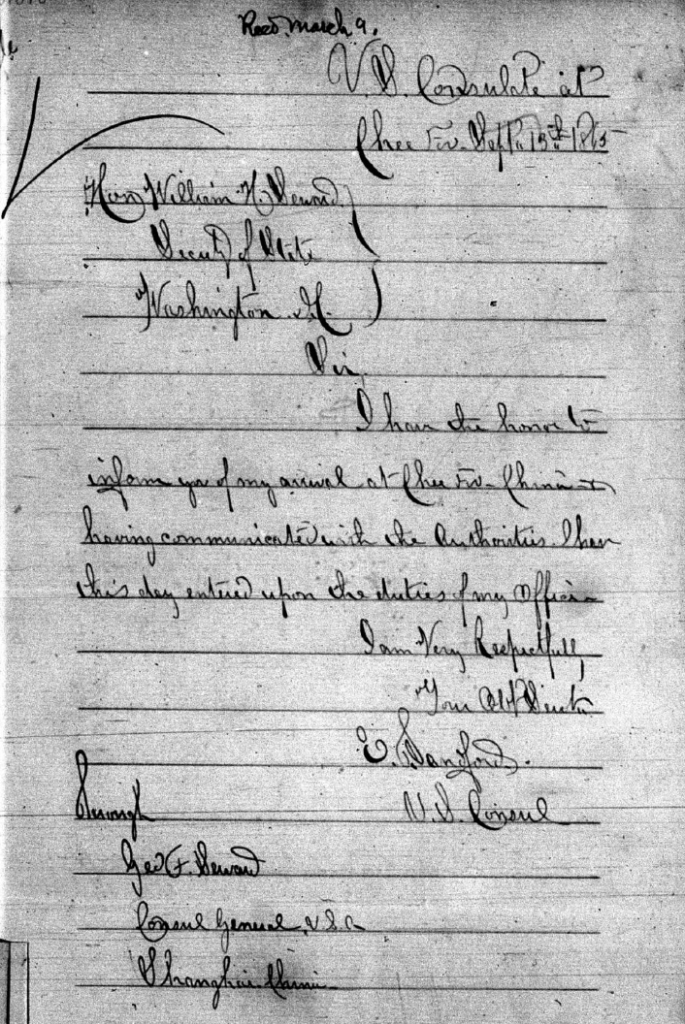 Recd. March 9.
U.S. Consulate at
Chee Foo. Sept. 15th 1865
Hon William H. Seward
Secrety of State
Washington D.C.
Sir,
I have the honor to
inform you of my arrival at Chee Foo. China &
having communicated with the Authorities. I have
this day entered upon the duties of my Office
I am Very Respectfully
Your Obt Servt
E. Sandford.
U.S. Consul
Through
Geo F. Seward
Consul General, U.S.A
Shanghai China